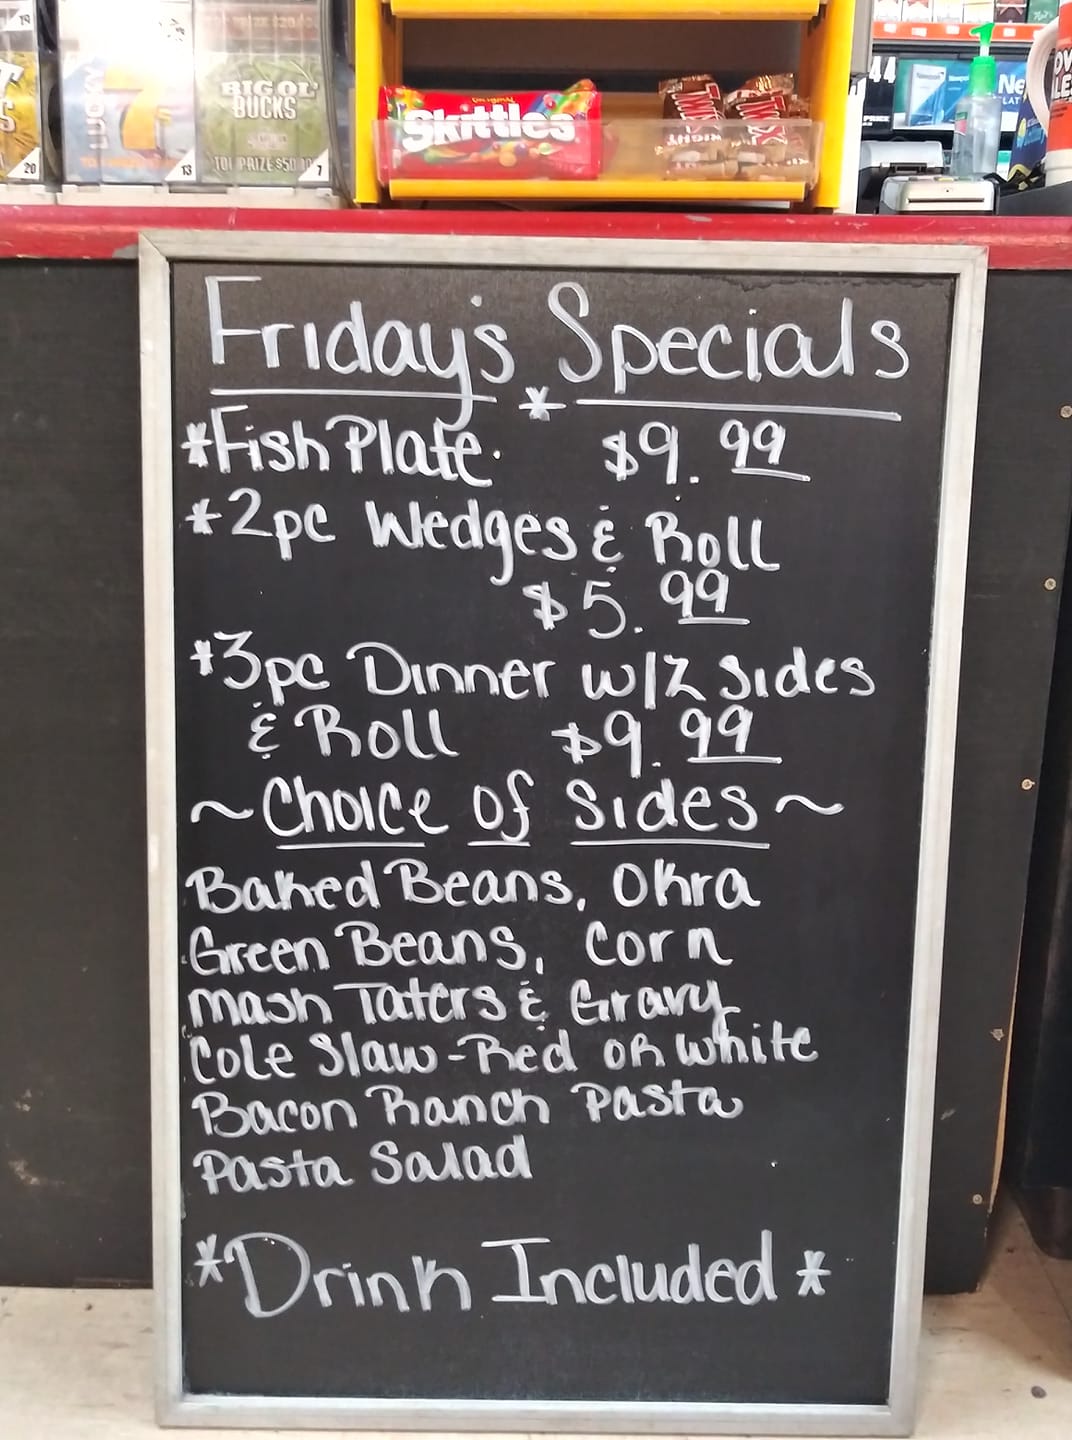 20
LUCKY
7
13
BIG OL'
BUCKS
TOP PRIZE
7
Skittles
TWIX
TWIX
44
Friday's Specials
*
*Fish Plate. $9.99
*2pc Wedges & Roll
$5.99
*3pc Dinner w/2 sides
& Roll $9.99
~Choice of Sides~
Baked Beans, Okra
Green Beans, Corn
Mash Taters & Gravy
Cole Slaw-Red or White
Bacon Ranch Pasta
Pasta Salad
*Drink Included*